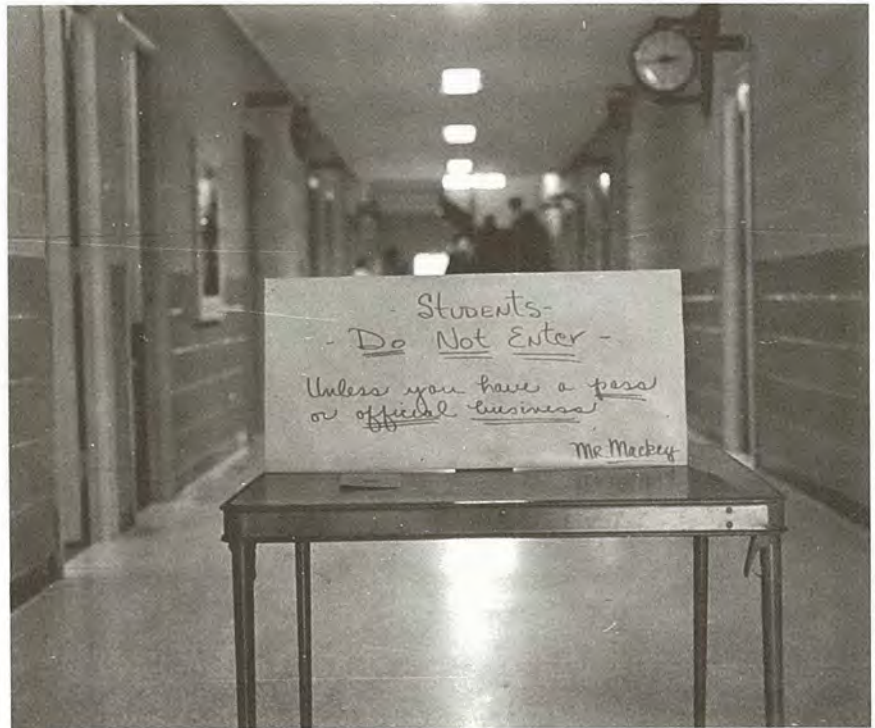 - Students -
- Do Not Enter -
Unless you have a pass
or official business
Mr Mackey